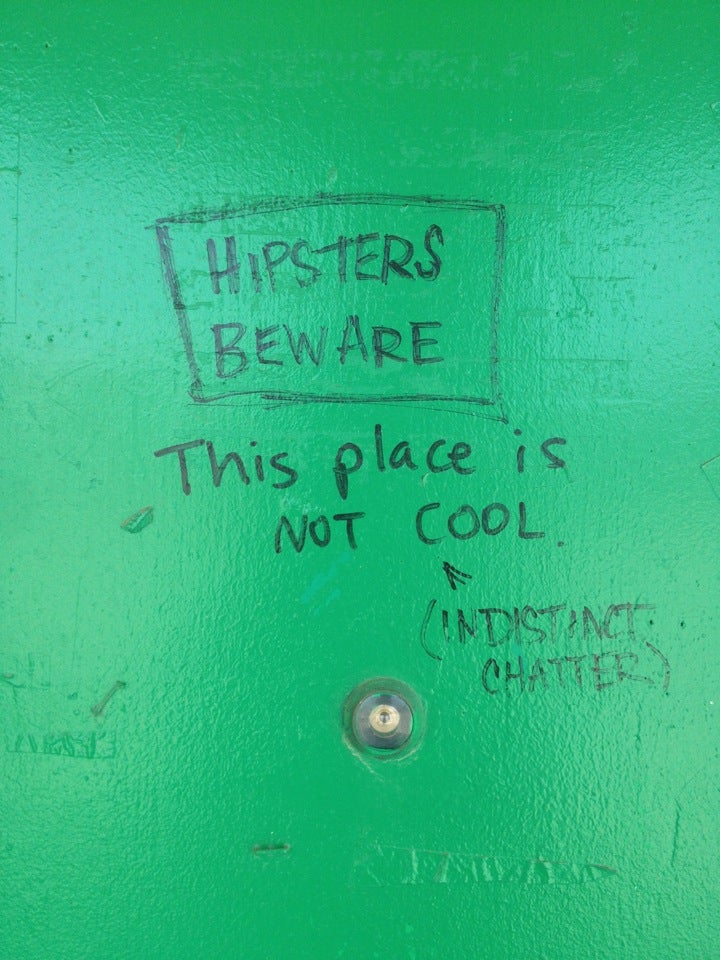 HIPSTERS
BEWARE
This place is
NOT COOL.
(INDISTINCT
CHATTER)